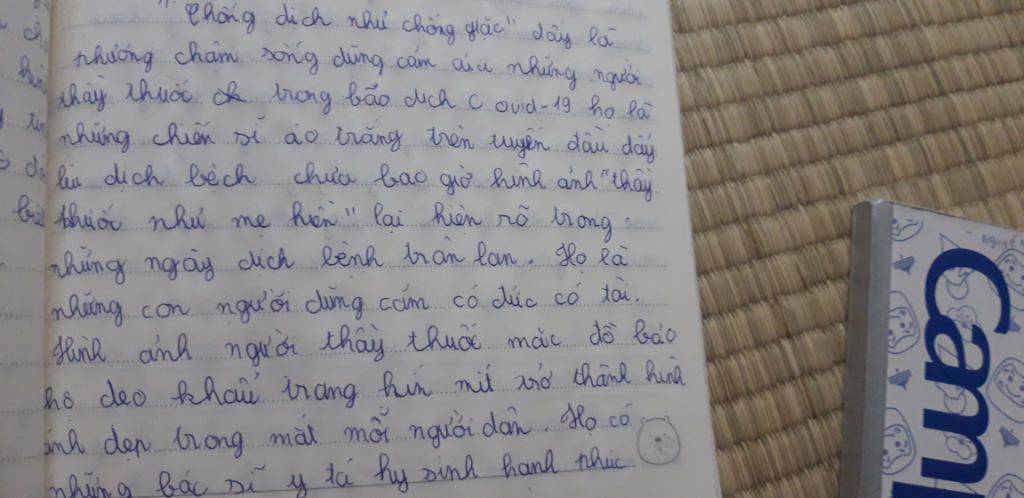 "Chống dịch như chống giặc" đây là
phương châm sống dũng cảm của những người
thầy thuốc trong bão dịch Covid-19 họ là
những chiến sĩ áo trắng trên tuyến đầu đẩy
lùi dịch bệch chưa bao giờ hình ảnh "thầy
thuốc như mẹ hiền" lại hiện rõ trong
những ngày dịch bệnh tràn lan. Họ là
những con người dũng cảm có đức có tài.
Hình ảnh người thầy thuốc mặc đồ bảo
hộ đeo khẩu trang kín mít trở thành hình
ảnh đẹp trong mắt mỗi người dân. Họ có
những bác sĩ y tá hy sinh hạnh phúc
Cam